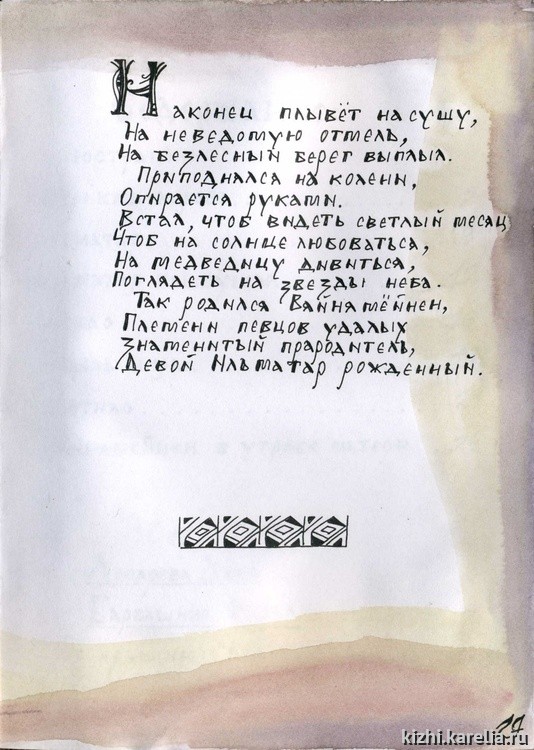 Наконец плывёт на сушу,
На неведомую отмель,
На безлесный берег выплыл.
Приподнялся на колени,
Опирается руками.
Встал, чтоб видеть светлый месяц
Чтоб на солнце любоваться,
На медведицу дивиться,
Поглядеть на звезды неба.
Так родился Вяйнямёйнен,
Племени певцов удалых
Знаменитый прародитель,
Девой Ильматар рожденный.
kizhi.karelia.ru